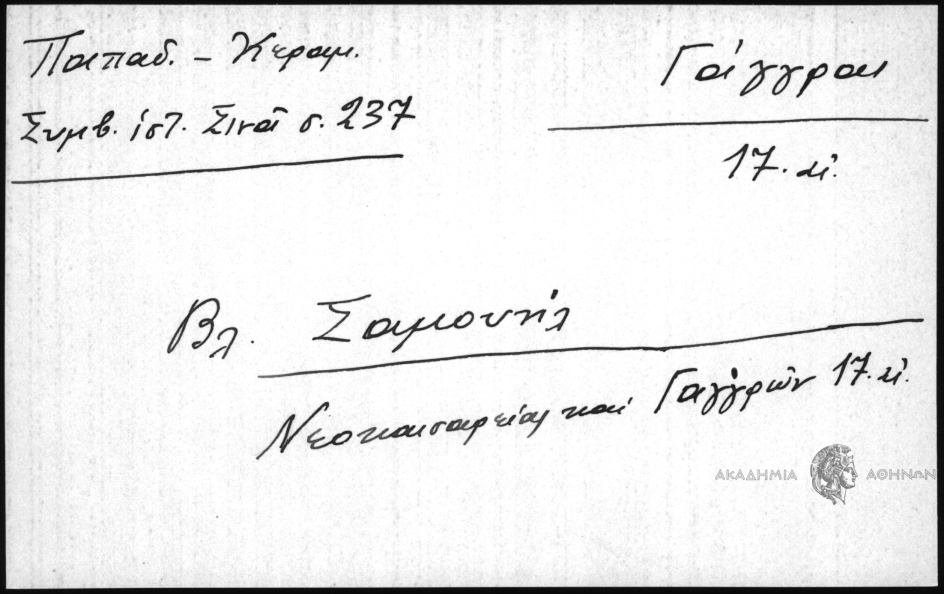 Παπαδ. - Κεραμ.
Συμβ. ἱστ. Σινᾶ σ. 237
Γάγγραι
17. αἰ.
Βλ. Σαμουήλ
Νεοκαισαρείας καὶ Γαγγρῶν 17. αἰ.
ΑΚΑΔΗΜΙΑ ΑΘΗΝΩΝ